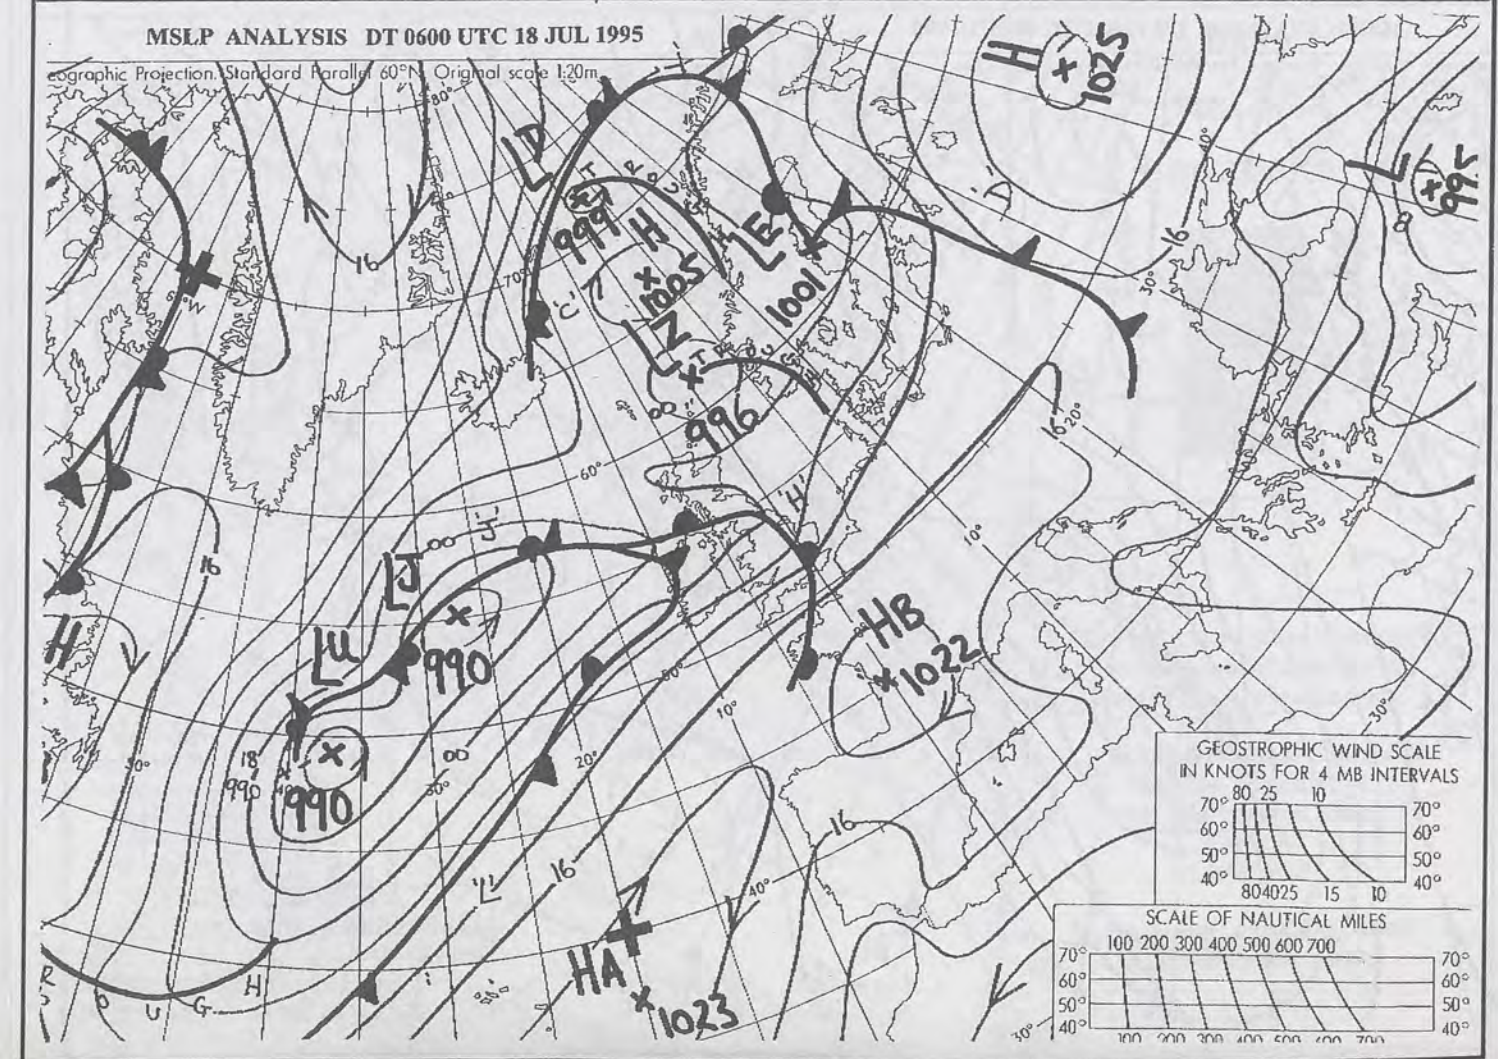 MSLP ANALYSIS DT 0600 UTC 18 JUL 1995
eographic Projection. Standard Parallel 60°N Original scale 1:20m
80°
H
1025
40°
L
995
LD
T R O U G H
999
H
1005
'C'
70°
LE
1001
'D'
16
8
30°
16
60°W
LZ
T R O U G H
996
00
16
20°
60°
16
'J'
00
LJ
990
'H'
10°
H
LU
HB
1022
50°
10°
20°
30°
30°
00
50°
18
990
990
16
'L'
16
40°
HA
1023
R O U G H
30°
GEOSTROPHIC WIND SCALE
IN KNOTS FOR 4 MB INTERVALS
80 25 10
70° 70°
60° 60°
50° 50°
40° 40°
80 40 25 15 10
SCALE OF NAUTICAL MILES
100 200 300 400 500 600 700
70° 70°
60° 60°
50° 50°
40° 40°
100 200 300 400 500 600 700